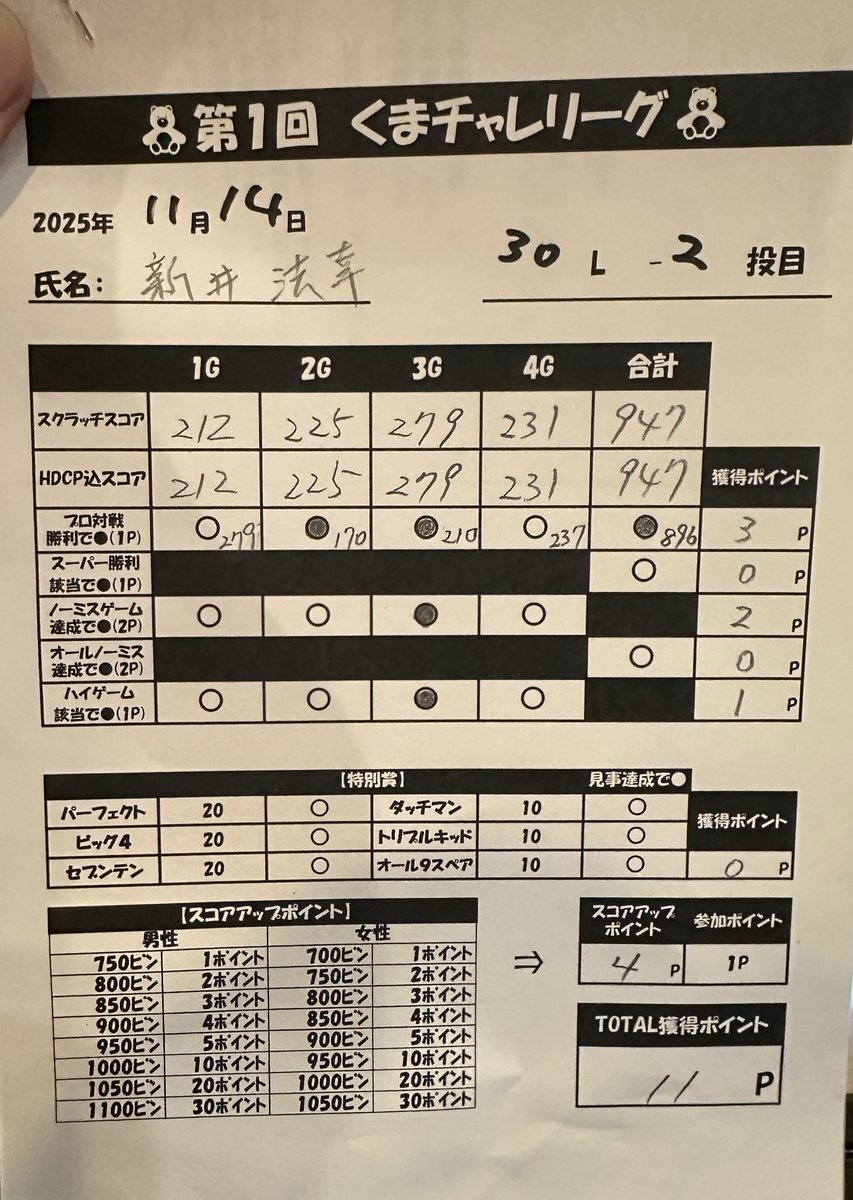 第1回 くまチャレリーグ
2025年 11月14日
氏名: 新井 法幸
30 L - 2 投目
1G 2G 3G 4G 合計
スクラッチスコア 212 225 279 231 947
HDCP込スコア 212 225 279 231 947 獲得ポイント
プロ対戦 勝利で●(1P) ○ 279 ● 170 ● 210 ○ 237 ● 896 3 P
スーパー勝利 該当で●(1P) ○ 0 P
ノーミスゲーム 達成で●(2P) ○ ○ ● ○ 2 P
オールノーミス 達成で●(2P) ○ 0 P
ハイゲーム 該当で●(1P) ○ ○ ● ○ 1 P
【特別賞】 見事達成で●
パーフェクト 20 ○ ダッチマン 10 ○ 獲得ポイント
ビッグ4 20 ○ トリプルキッド 10 ○
セブンテン 20 ○ オール9スペア 10 ○ 0 P
【スコアアップポイント】
男性 女性
750ピン 1ポイント 700ピン 1ポイント
800ピン 2ポイント 750ピン 2ポイント
850ピン 3ポイント 800ピン 3ポイント
900ピン 4ポイント 850ピン 4ポイント
950ピン 5ポイント 900ピン 5ポイント
1000ピン 10ポイント 950ピン 10ポイント
1050ピン 20ポイント 1000ピン 20ポイント
1100ピン 30ポイント 1050ピン 30ポイント
⇒
スコアアップポイント 参加ポイント
4 P 1P
TOTAL獲得ポイント
11 P